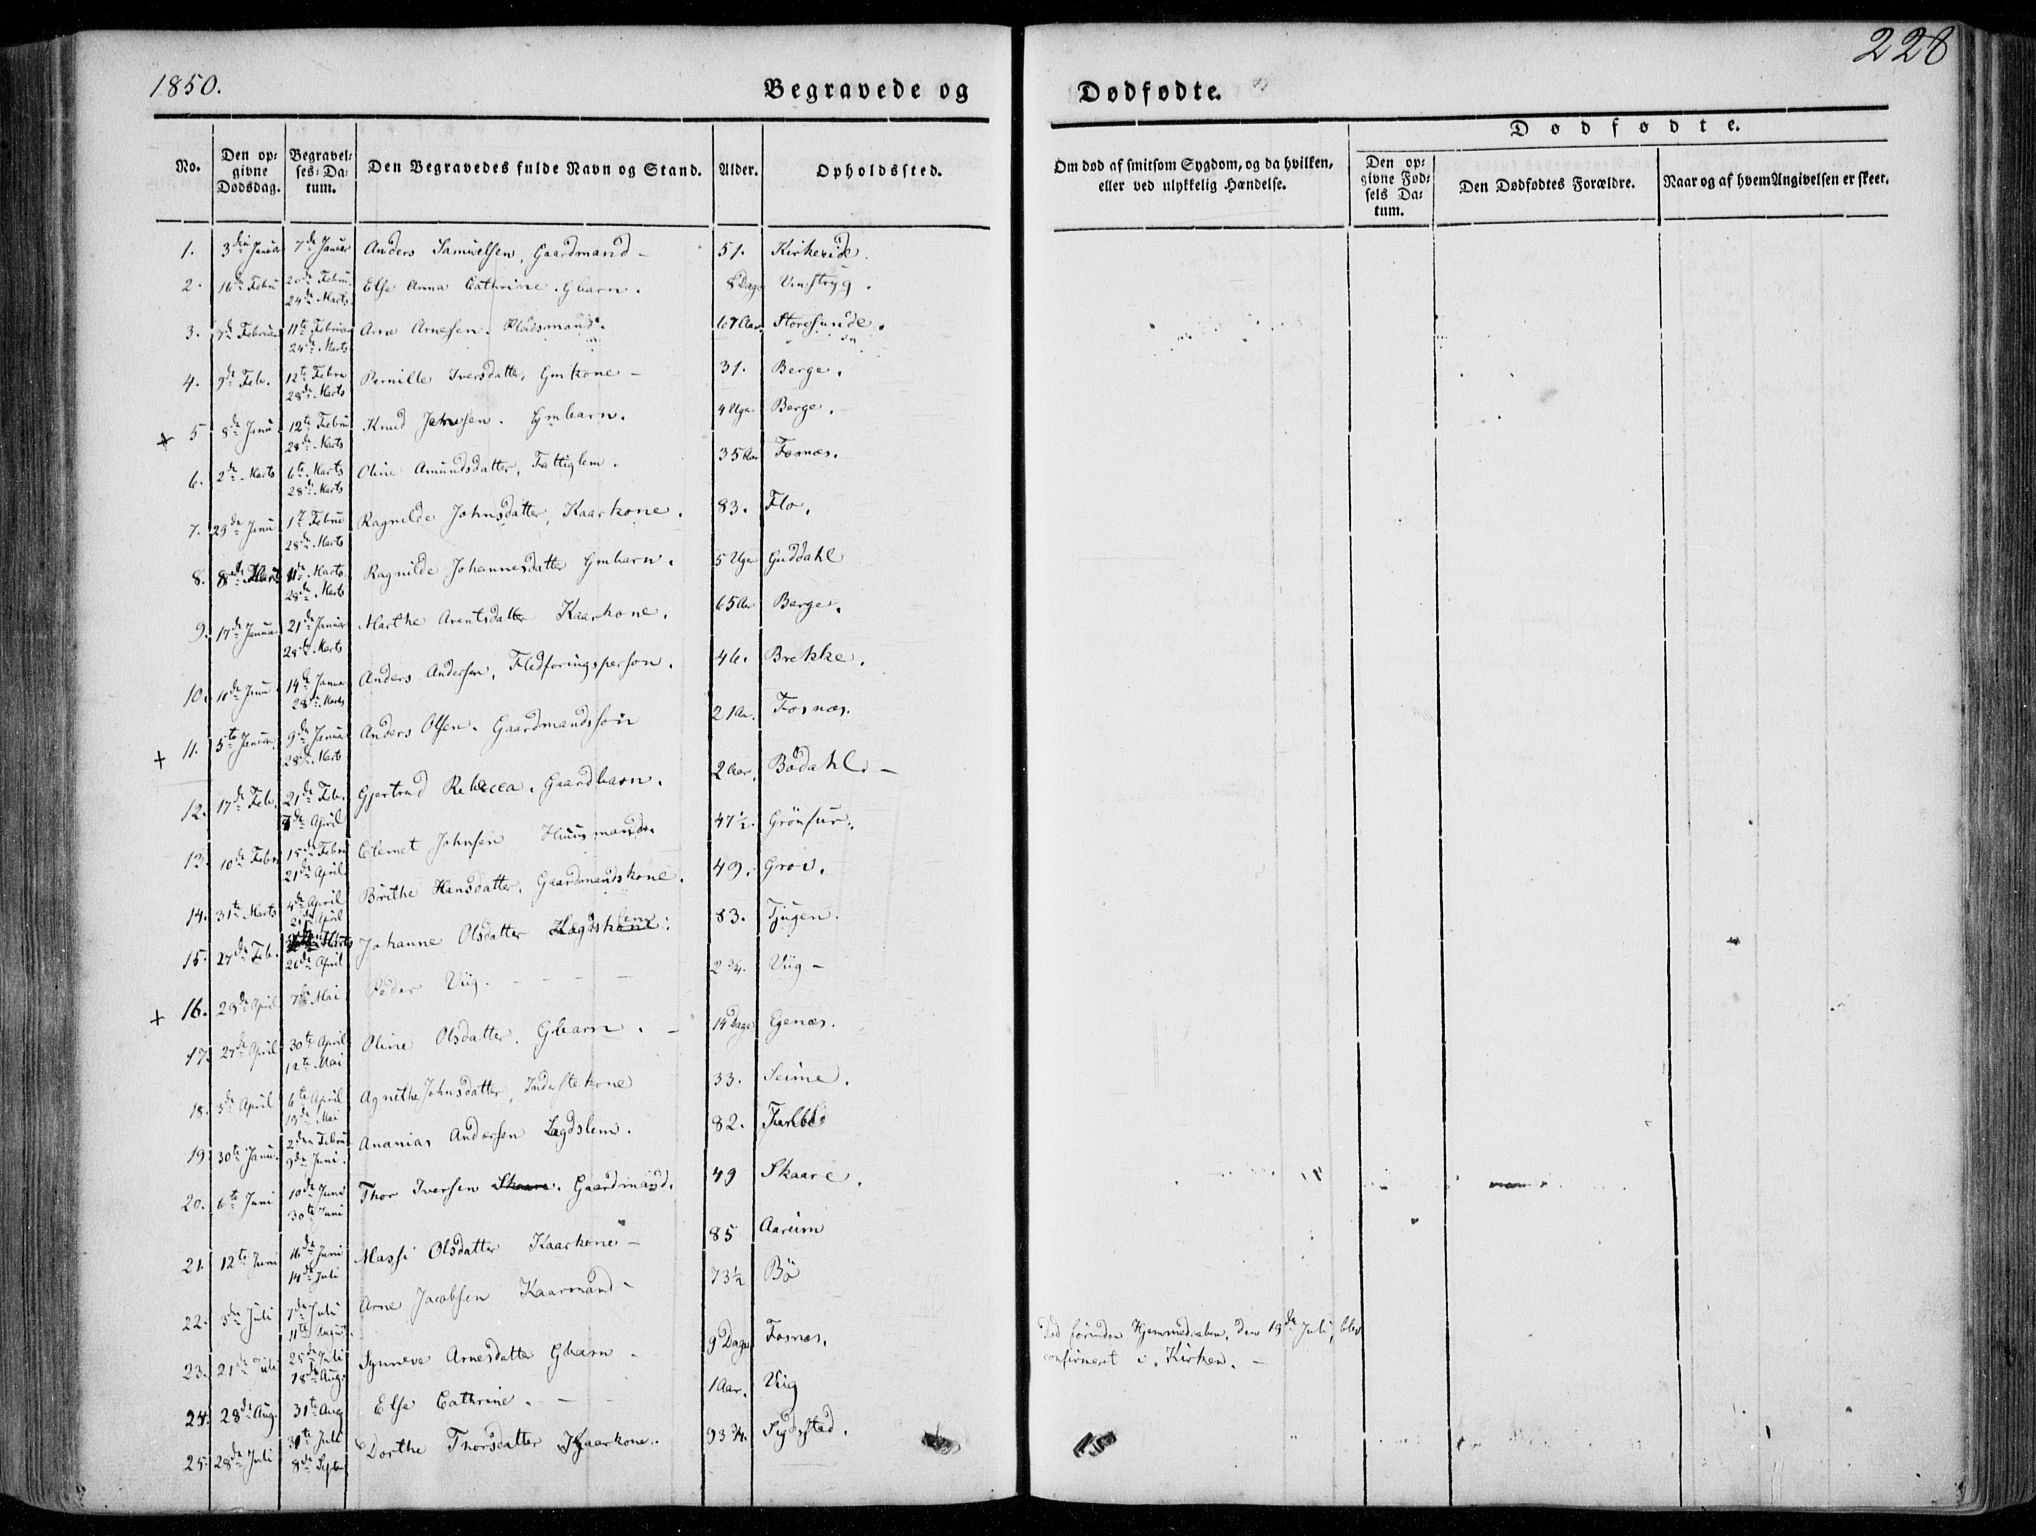 228
1850.
Begravede og Dødfødte.
Dødfødte.
No. Den opgivne Dødsdag. Begravelses-Datum. Den Begravedes fulde Navn og Stand. Alder. Opholdssted. Om død af smitsom Sygdom, og da hvilken, eller ved ulykkelig Hændelse. Den opgivne Fødsels Datum. Den Dødfødtes Forældre. Naar og af hvem Angivelsen er skeet.
1. 3die Janua 7de Januar Anders Samuelsen, Gaardmand – 51. Kirkeeide.
2. 16de Febru 20de Febru. 24de Marts Else Anna Cathrine. Gbarn. 8 Dage Vinstryg.
3. 7de Februa 11te Februar 24de Marts Arne Arnesen. Pladsmand. 67 Aar. Storesunde.
4. 9de Feb. 12te Febru 28de Marts Pernille Iversdatter, Gmkone – 31. Berge.
+ 5 8de Janu. 12te Febru 28de Marts Knud Jensen. Gmbarn. 4 Uger Berge.
6. 2de Marts 6te Marts 28de Marts Oline Amundsdatter, Fattiglem. 35 Aar Fosnæs.
7. 29de Janu. 1te Febru 28de Marts Ragnilde Johnsdatter, Kaarkone. 83. Flo.
8. 8de Marts 11te Marts. 28de Marts Ragnilde Johannesdatter Gmbarn. 5 Uger Guddahl
9. 17de Januar 21de Januar 28de Marts Marthe Arentsdatter Kaarkone. 65 Aar Berge.
10. 10de Janu. 14de Janua 28de Marts Anders Andersen, Fledføringsperson. 46. Brekke.
+ 11. 5te Januar. 9de Januar 28de Marts Anders Olsen. Gaardmandssøn 21 Aar. Fosnæs.
12. 17de Feb. 21de Feb. 7de April Gjertrud Rebecca. Gaardbarn. 2 Aar. Bødahl. –
13. 10de Febru 15de Febru 21de April Clemet Johnsen Huusmand. 47½. Grönfur.
14. 31te Marts 4de April 21de April Brithe Hansdatter, Gaardmandskone. 49. Grov.
15. 27de Feb. Marts 26de April Johanne Olsdatter Lægdslem. 83. Tjugen.
+ 16. 29de April 7de Mai Peder Viig. – – – 2¾. Viig –
17. 27de April 30te April 12te Mai Oline Olsdatter. Gbarn. – 14 Dage Egenæs.
18. 3de April 6te April 19de Mai Agnethe Johnsdatter, Inderstekone 33. Seime.
19. 30te Janu. 2den Febru 9de Juni. Ananias Andersen Lægdslem. 82.
20. 6te Juni 10de Juni 30te Juni Thor Iversen Skaare. Gaardmand. 49 Skaare.
21. 12te Juni 16de Juni 14de Juli Massi Olsdatter Kaarkone – 85 Aarum
22. 3de Juli 7de Juli 11te August. Arne Jacobsen Kaarmand – 73½ Bö
23. 21de Juli 25de Juli 18de Aug. Synneve Arnesdatter Gbarn. 9 Dage Fosnæs. Død forinden Hjemmedaaben, den 19de Juli, blev confirmeret i Kirken. –
24. 28de Aug. 31te Aug Else Cathrine. – – 1 Aar. Viig
25. 28de Juli 31te Juli 8de Septe Dorthe Thorsdatter Kaarkone. 93¾.